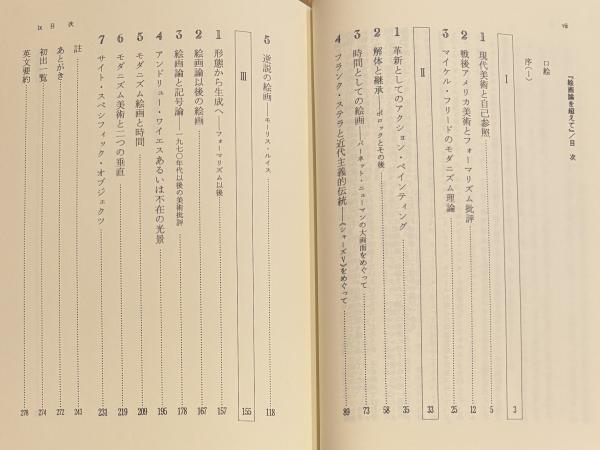 viii
『絵画論を超えて』/目 次
口絵
序(一)
I 3
1 現代美術と自己参照 5
2 戦後アメリカ美術とフォーマリズム批評 12
3 マイケル・フリードのモダニズム理論 25
II 33
1 革新としてのアクション・ペインティング 35
2 解体と継承——ポロックとその後 58
3 時間としての絵画——バーネット・ニューマンの大画面をめぐって 73
4 フランク・ステラと近代主義的伝統——《シャーズV》をめぐって 89
ix 目 次
5 逆説の絵画——モーリス・ルイス 118
III 155
1 形態から生成へ——フォーマリズム以後 157
2 絵画論以後の絵画 167
3 絵画論と記号論——一九七〇年代以後の美術批評 178
4 アンドリュー・ワイエスあるいは不在の光景 195
5 モダニズム絵画と時間 209
6 モダニズム美術と二つの垂直 219
7 サイト・スペシフィック・オブジェクツ 231
註 243
あとがき 272
初出一覧 274
英文要約 278